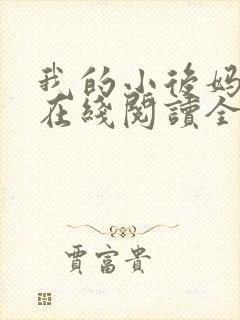 我的小後妈
在綫閱讀全
賈富貴